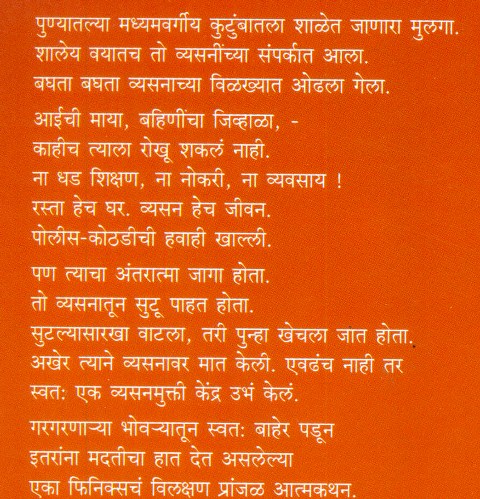 पुण्यातल्या मध्यमवर्गीय कुटुंबातला शाळेत जाणारा मुलगा.
शालेय वयातच तो व्यसनींच्या संपर्कात आला.
बघता बघता व्यसनाच्या विळख्यात ओढला गेला.
आईची माया, बहिणींचा जिव्हाळा, -
काहीच त्याला रोखू शकलं नाही.
ना धड शिक्षण, ना नोकरी, ना व्यवसाय !
रस्ता हेच घर. व्यसन हेच जीवन.
पोलीस-कोठडीची हवाही खाल्ली.
पण त्याचा अंतरात्मा जागा होता.
तो व्यसनातून सुटू पाहत होता.
सुटल्यासारखा वाटला, तरी पुन्हा खेचला जात होता.
अखेर त्याने व्यसनावर मात केली. एवढंच नाही तर
स्वत: एक व्यसनमुक्ती केंद्र उभं केलं.
गरगरणाऱ्या भोवऱ्यातून स्वत: बाहेर पडून
इतरांना मदतीचा हात देत असलेल्या
एका फिनिक्सचं विलक्षण प्रांजळ आत्मकथन.